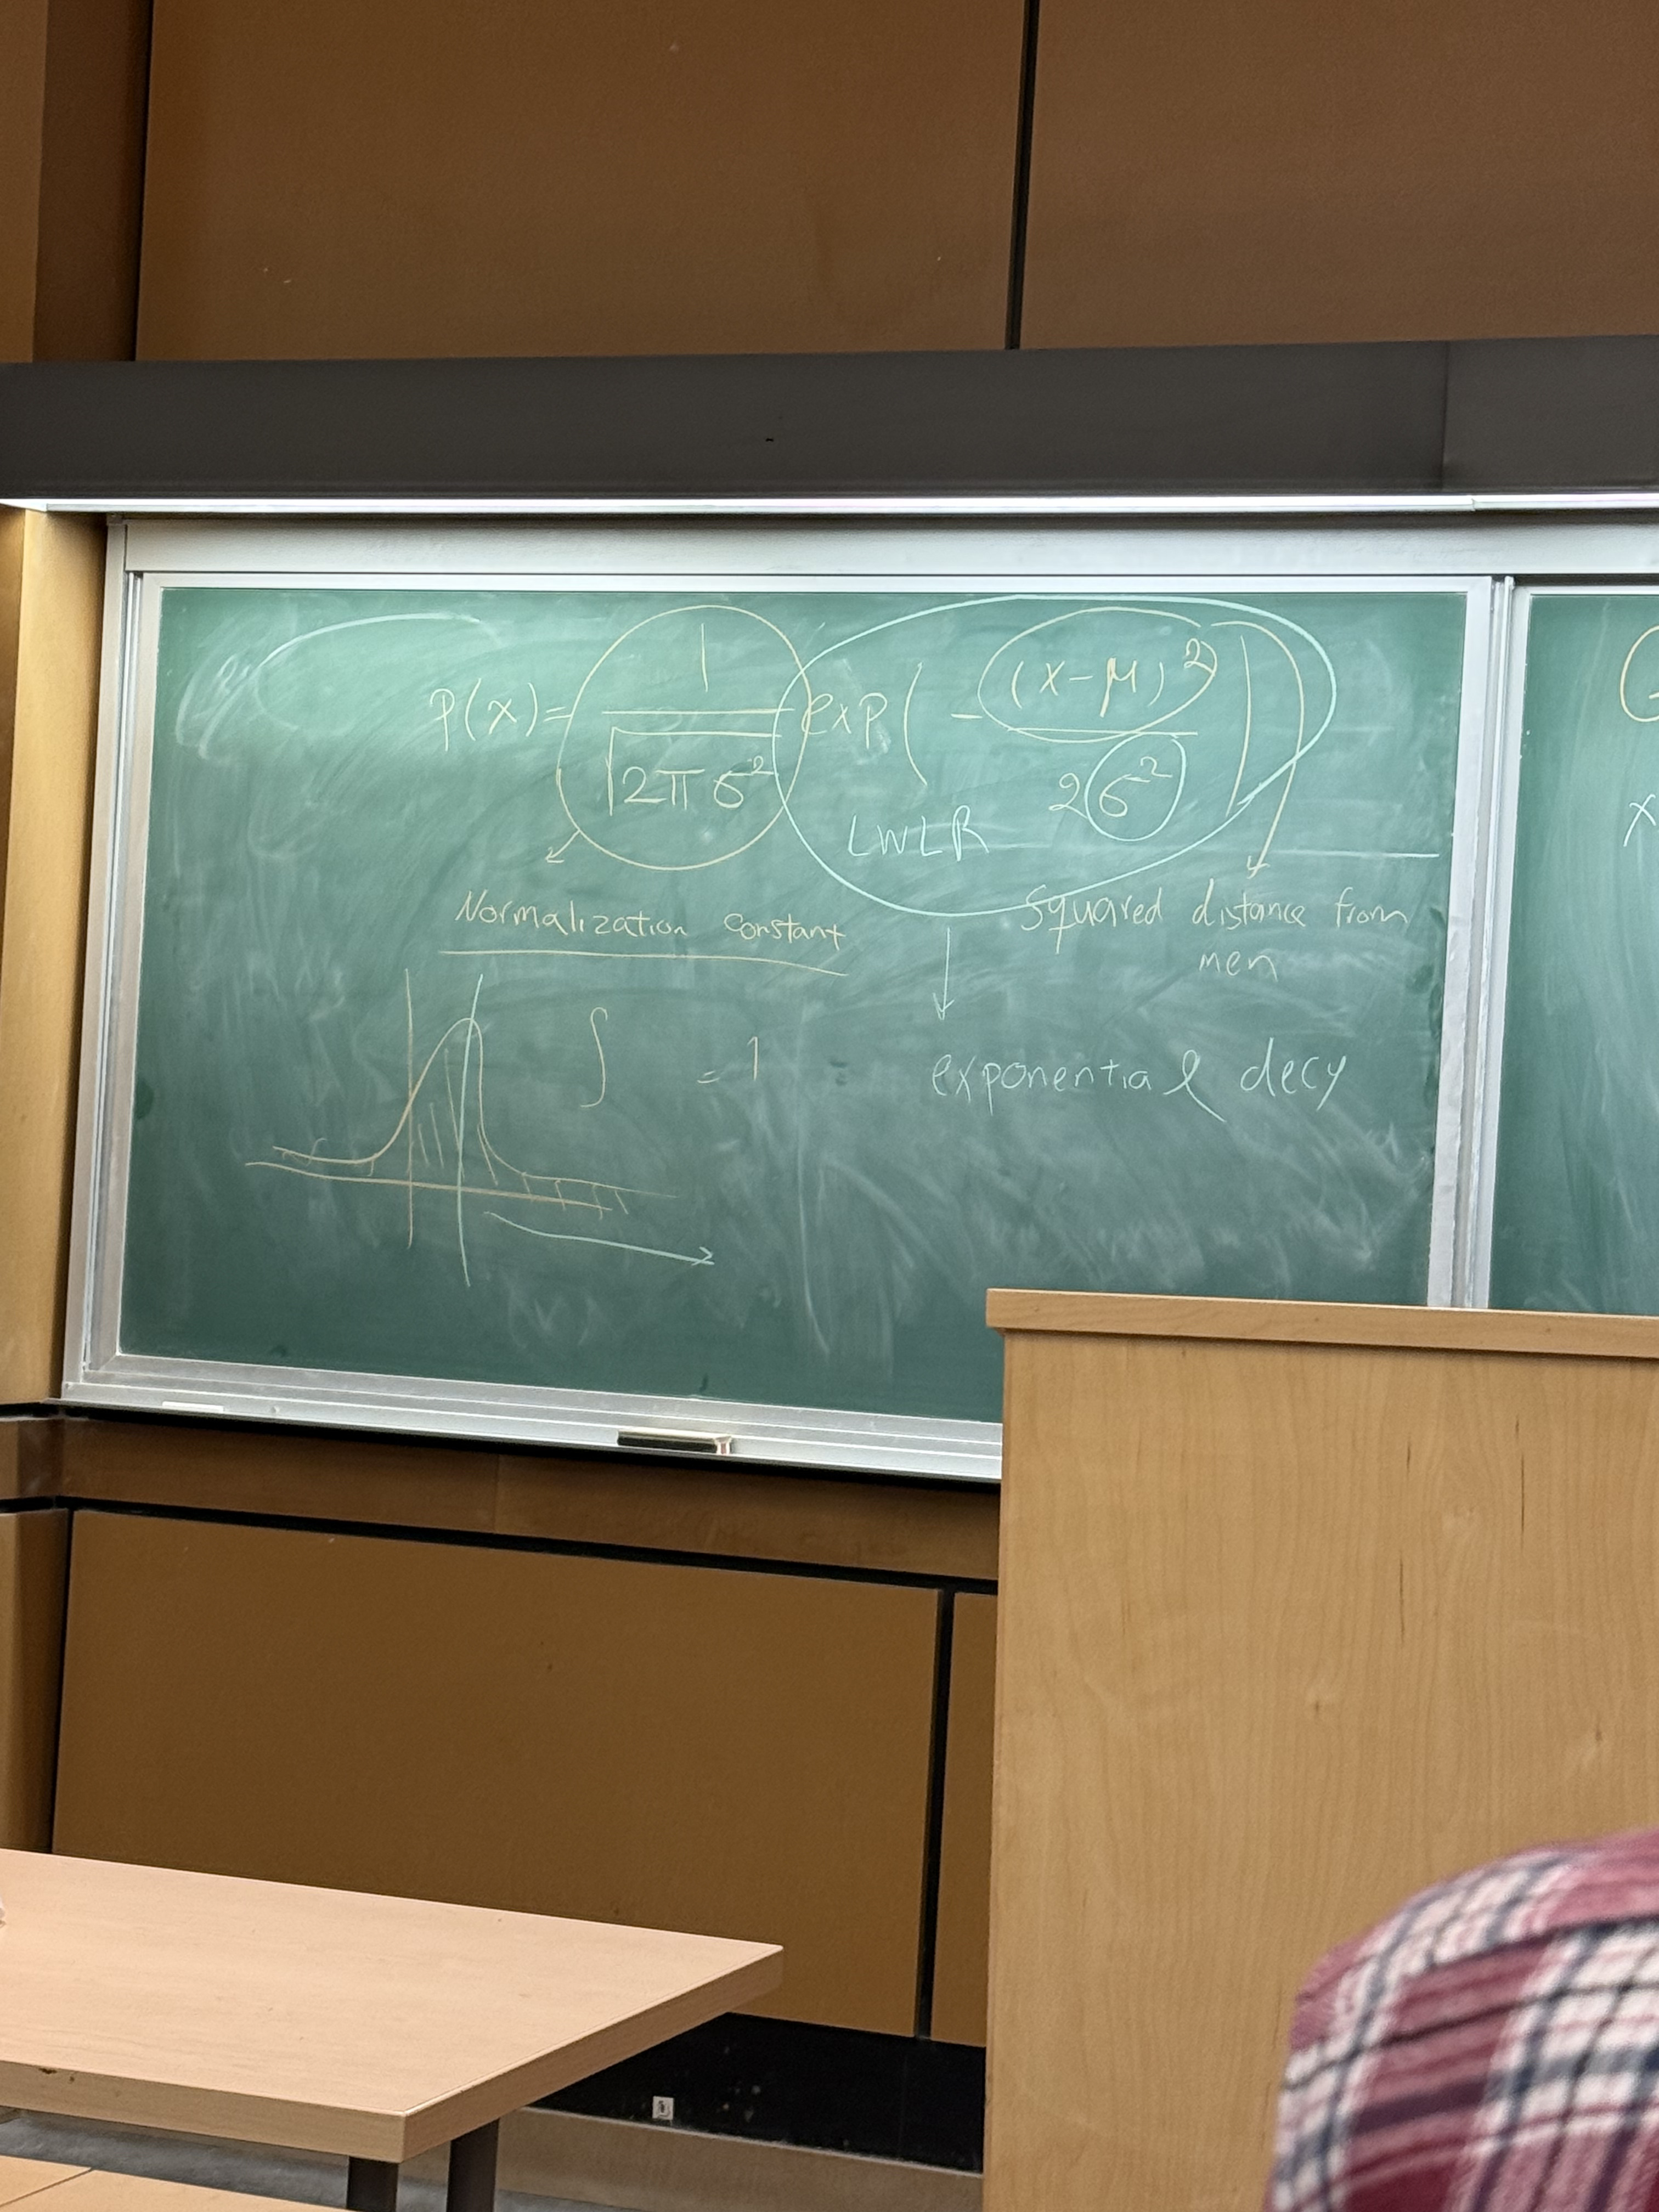 p(x) = 1 / √2πσ² exp( - (x-μ)² / 2σ² )
LWLR
Normalization constant
Squared distance from
men
∫ = 1
exponential decy
x